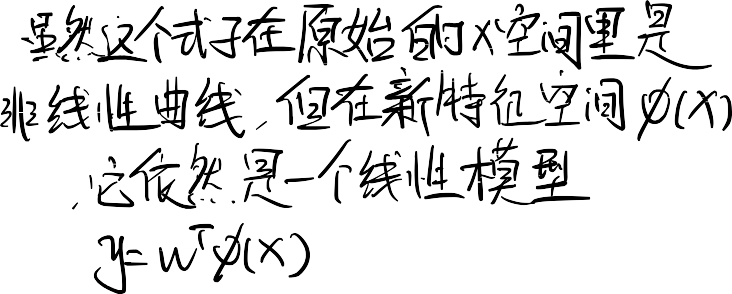 虽然这个式子在原始的x空间里是
非线性曲线,但在新特征空间φ(x)
,它依然是一个线性模型
y=wᵀφ(x)